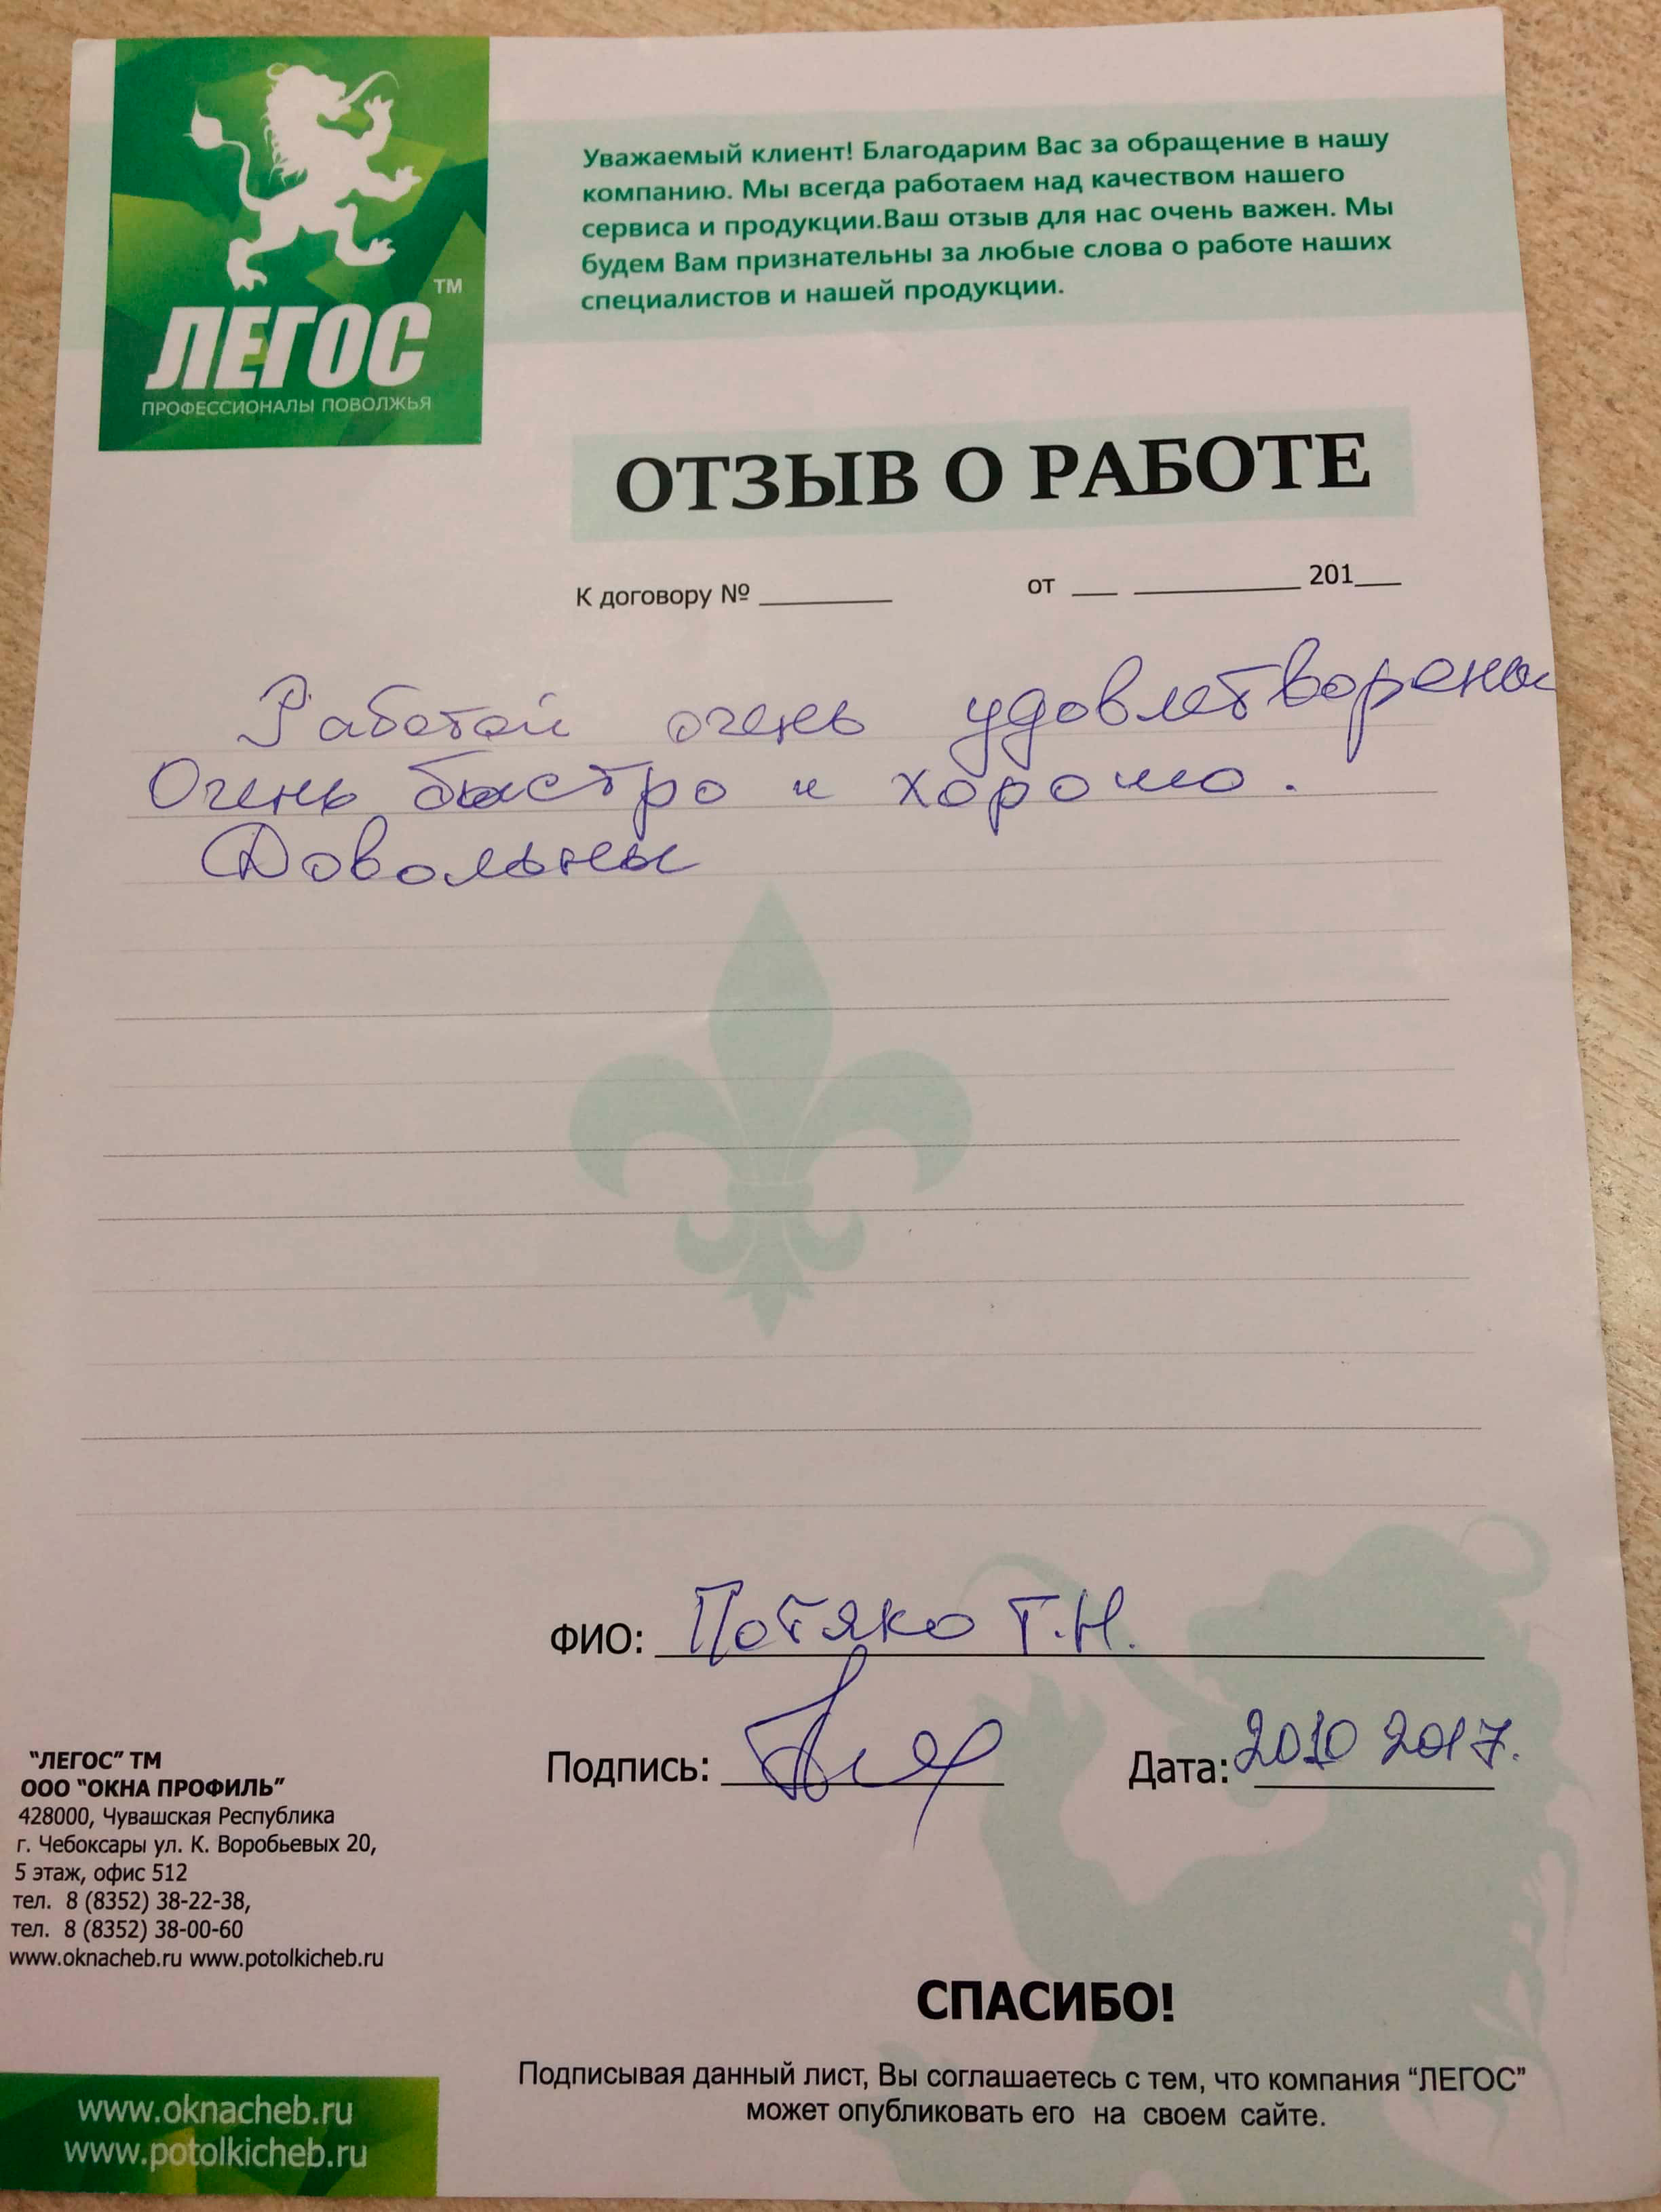 ЛЕГОС TM
ПРОФЕССИОНАЛЫ ПОВОЛЖЬЯ
Уважаемый клиент! Благодарим Вас за обращение в нашу
компанию. Мы всегда работаем над качеством нашего
сервиса и продукции.Ваш отзыв для нас очень важен. Мы
будем Вам признательны за любые слова о работе наших
специалистов и нашей продукции.
ОТЗЫВ О РАБОТЕ
К договору № ________ от __ __________ 201__
Работой очень удовлетворены
Очень быстро и хорошо.
Довольны
ФИО: Потяко Т.Н.
Подпись: Дата: 2010 2017.
"ЛЕГОС" ТМ
ООО "ОКНА ПРОФИЛЬ"
428000, Чувашская Республика
г. Чебоксары ул. К. Воробьевых 20,
5 этаж, офис 512
тел. 8 (8352) 38-22-38,
тел. 8 (8352) 38-00-60
www.oknacheb.ru www.potolkicheb.ru
СПАСИБО!
Подписывая данный лист, Вы соглашаетесь с тем, что компания "ЛЕГОС"
может опубликовать его на своем сайте.
www.oknacheb.ru
www.potolkicheb.ru